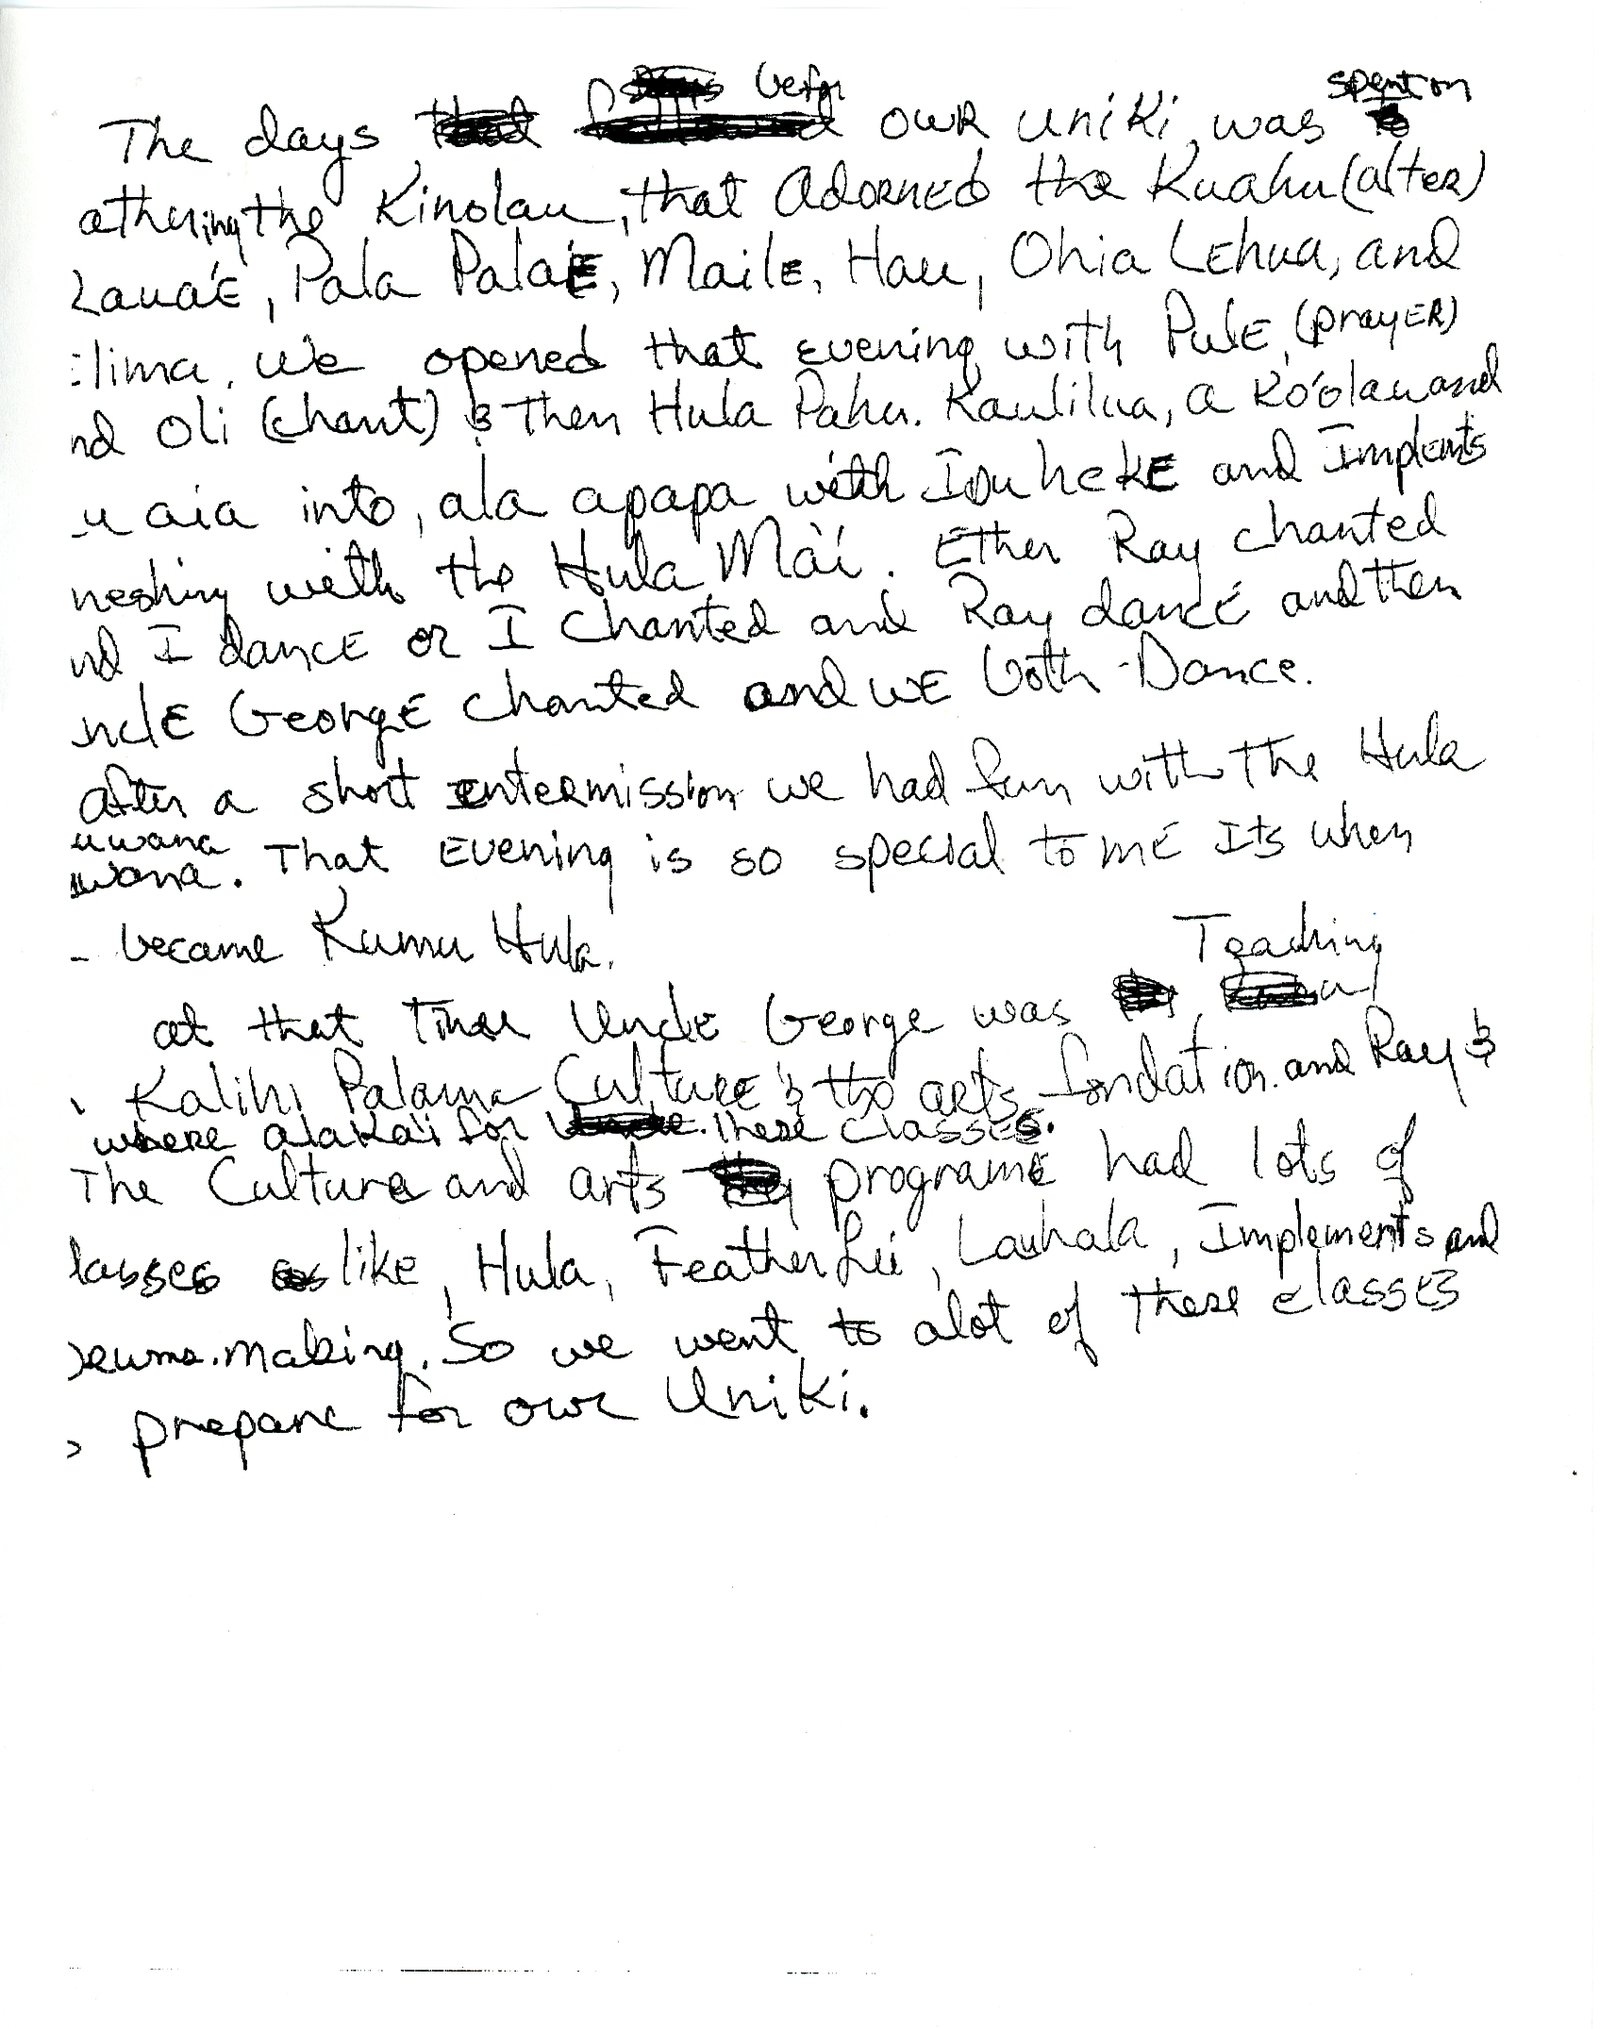 The days befor OUR UNIKI, was spent on
athering the Kinolau, that ADORNED the Kuahu (alteR)
Laua'E, Pala PalaE, MailE, Hau, Ohia LEhua, and
lima. We opened that evening with PulE, (prayER)
nd Oli (chant) & then Hula Pahu. Kaulilua, a Ko'olau and
u aia into, ala apapa with Ipu hekE and Implemts
neshing with the Hula Ma'i. Ether Ray chanted
nd I dancE or I Chanted and Ray dancE and then
nclE GeorgE chanted and wE both Dance.
after a short Intermission we had fun with The Hula
uwana
uwana. That Evening is so special to mE Its when
became Kumu Hula.
at that Time UnclE George was Teaching
Kalihi Palama CulturE & the arts fondation. and Ray &
where alaka'i for these classes.
The Culture and arts programE had lots of
lasses like, Hula, Feather Lei, Lauhala, Implements and
making. So we went to alot of These classes
prepare for our Uniki.